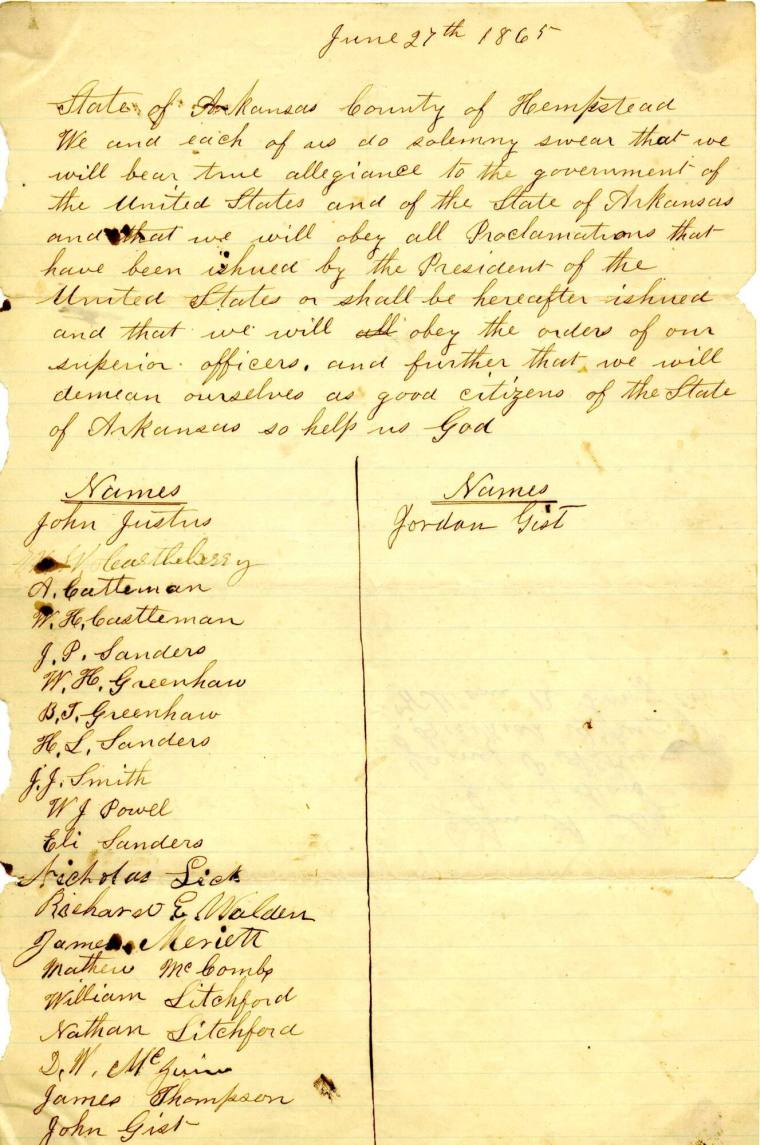 June 27th 1865
State of Arkansas County of Hempstead
We and each of us do solemny swear that we
will bear true allegiance to the government of
the United States and of the State of Arkansas
and that we will obey all Proclamations that
have been ishued by the President of the
United States or shall be hereafter ishued
and that we will all obey the orders of our
superior officers. and further that we will
demean ourselves as good citizens of the State
of Arkansas so help us God
Names
John Justus
W. Castleberry
A. Catteman
W. H. Castleman
J. P. Sanders
W. H. Greenhaw
B. T. Greenhaw
H. L. Sanders
J. J. Smith
W J Powel
Eli Sanders
Nicholas Lick
Richard E. Walden
James Meriett
Mathew McCombs
William Litchford
Nathan Litchford
D. W.
James Thompson
John Gist
Names
Jordan Gist